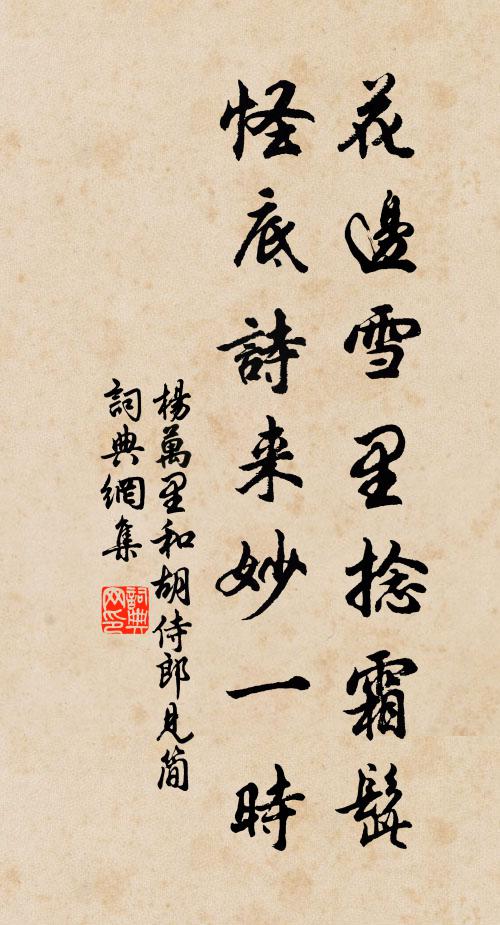 花邊雪里捻霜髭
怪底詩来妙一時
楊萬里和胡侍郎見簡
詞典網集
詞典
网印